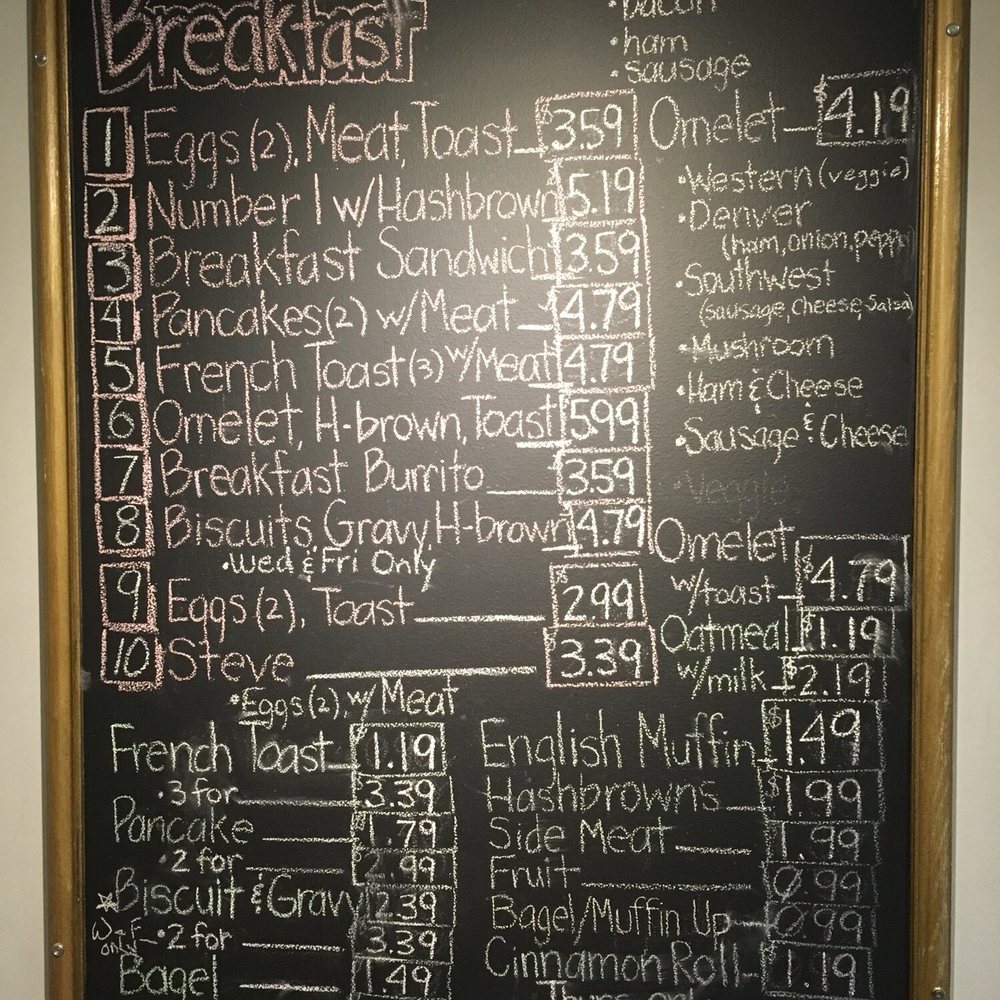 Breakfast
1 Eggs (2), Meat, Toast $3.59
2 Number 1 w/Hashbrown 5.19
3 Breakfast Sandwich 3.59
4 Pancakes (2) w/Meat 4.79
5 French Toast (3) w/Meat 4.79
6 Omelet, H-brown, Toast 5.99
7 Breakfast Burrito 3.59
8 Biscuits, Gravy, H-brown 4.79
•Wed & Fri Only
9 Eggs (2), Toast 2.99
10 Steve 3.39
•Eggs (2), w/Meat
•bacon
•ham
•sausage
Omelet $4.19
•Western (veggie)
•Denver
(ham, onion, pepper
•Southwest
(Sausage, Cheese, Salsa)
•Mushroom
•Ham & Cheese
•Sausage & Cheese
•Veggie
Omelet
w/toast $4.79
Oatmeal $1.19
w/milk $2.19
French Toast $1.19
•3 for 3.39
Pancake 1.79
•2 for 2.99
Biscuit & Gravy 2.39
W-F only •2 for 3.39
Bagel 1.49
English Muffin $1.49
Hashbrowns $1.99
Side Meat 1.99
Fruit 0.99
Bagel/Muffin Up 0.99
Cinnamon Roll 1.19
Thurs only